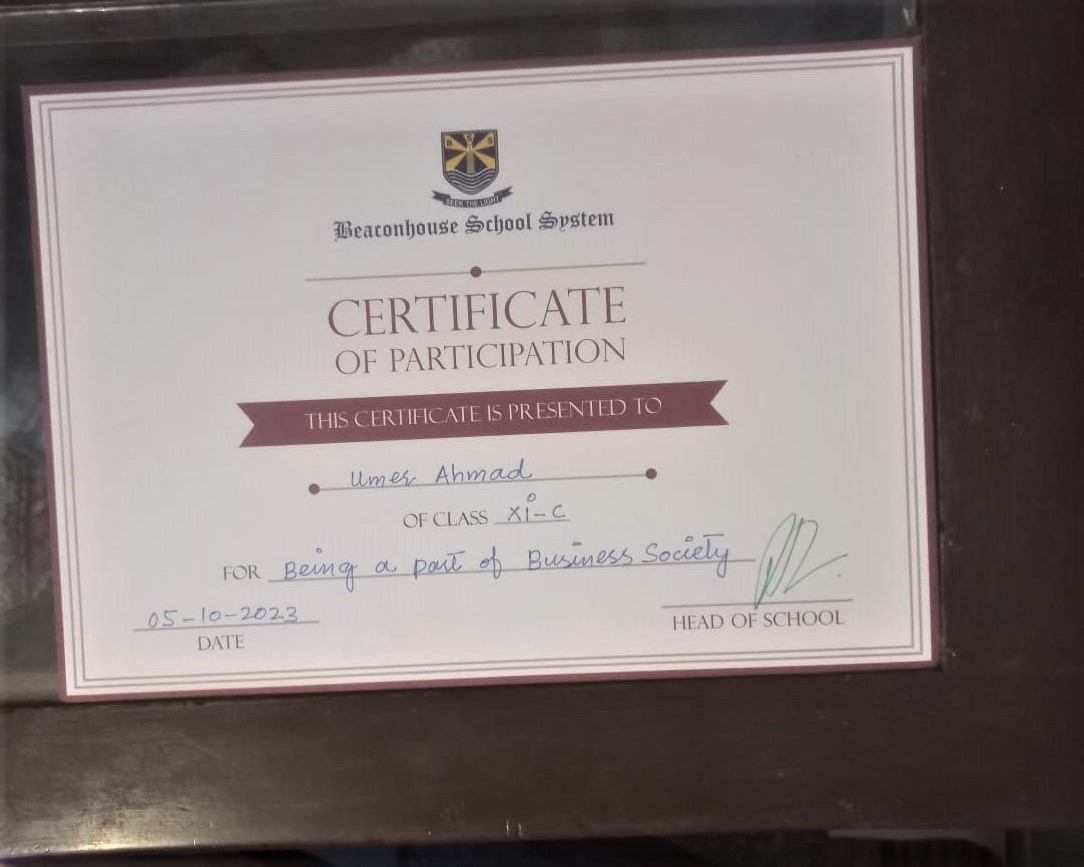 SEEK THE LIGHT
Beaconhouse School System
CERTIFICATE
OF PARTICIPATION
THIS CERTIFICATE IS PRESENTED TO
Umer Ahmad
OF CLASS XI-C
FOR Being a part of Business Society
05-10-2023
DATE
HEAD OF SCHOOL